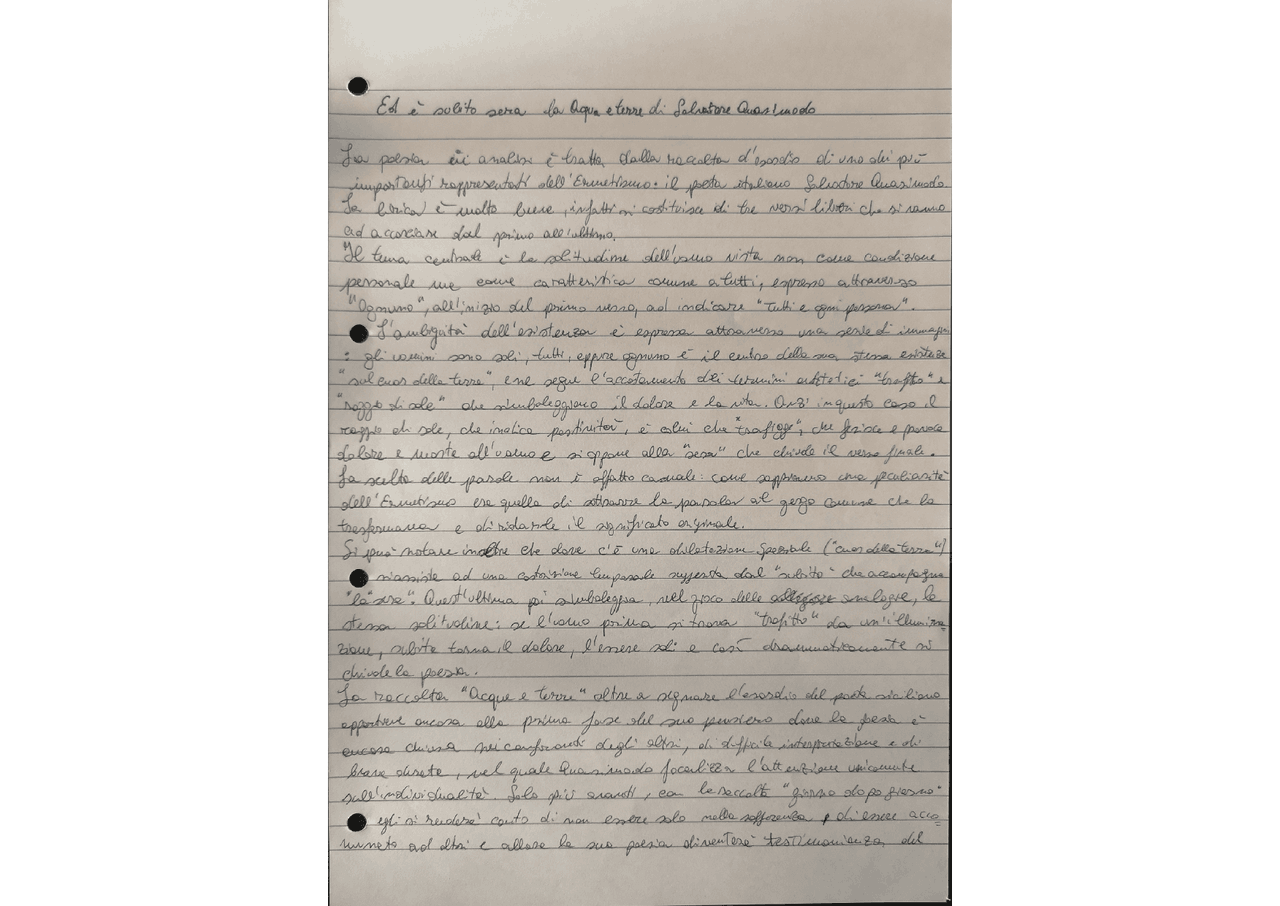 Ed è subito sera da Acqua e terre di Salvatore Quasimodo
La poesia in analisi è tratta dalla raccolta d'esordio di uno dei più
importanti rappresentati dell'Ermetismo: il poeta italiano Salvatore Quasimodo.
La lirica è molto breve, infatti si costituisce di tre versi liberi che si vanno
ad accorciare dal primo all'ultimo.
Il tema centrale è la solitudine dell'uomo vista non come condizione
personale ma come caratteristica comune a tutti, espresso attraverso
"Ognuno", all'inizio del primo verso, ad indicare "tutti e ogni persona".
L'ambiguità dell'esistenza è espressa attraverso una serie di immagini
: gli uomini sono soli, tutti, eppure ognuno è il centro della sua stessa esistenza
"sul cuor della terra", ene segue l'accostamento dei termini antitetici "trafitto" e
"raggio di sole" che simboleggiano il dolore e la vita. Anzi in questo caso il
raggio di sole, che indica positività, è colui che "trafigge", che ferisce e provoca
dolore e morte all'uomo e si oppone alla "sera" che chiude il verso finale.
La scelta delle parole non è affatto casuale: come sappiamo una peculiarità
dell'Ermetismo era quella di sottrarre la parola al gergo comune che la
trasformava e di ridarle il significato originale.
Si può notare inoltre che dove c'è una dilatazione spaziale ("cuor della terra")
si assiste ad una costrizione temporale suggerita dal "subito" che accompagna
"la "sera". Quest'ultima poi simboleggia, nel gioco delle analogie, la
stessa solitudine: se l'uomo prima si trova "trafitto" da un'illumina
zione, subito torna il dolore, l'essere soli e così drammaticamente si
chiude la poesia.
La raccolta "Acque e terre" oltre a signare l'esordio del poeta siciliano
appartiene ancora alla prima fase del suo pensiero dove la poesia è
ancora chiusa nei confronti degli altri, di difficile interpretazione e di
breve durata, nel quale Quasimodo focalizza l'attenzione unicamente
sull'individualità. Solo più avanti, con la raccolta "giorno dopo giorno"
egli si renderà conto di non essere solo nella sofferenza, di essere acco
munato ad altri e allora la sua poesia diventerà testimonianza del